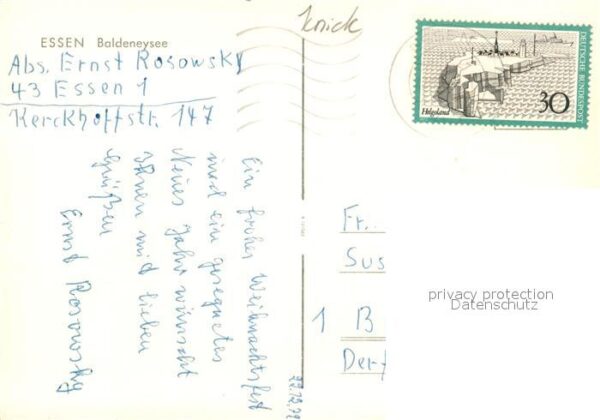 ESSEN Baldeneysee
Abs. Ernst Rosowsky
43 Essen 1
Kerckhoffstr. 147
knick
DEUTSCHE BUNDESPOST
Helgoland
30
Ein frohes Weihnachtsfest
und ein gesegnetes
Neues Jahr wünscht
Ihnen mit lieben
Grüßen
Ernst Rosowsky
Fr.
Sus
1 B
Der
privacy protection
Datenschutz